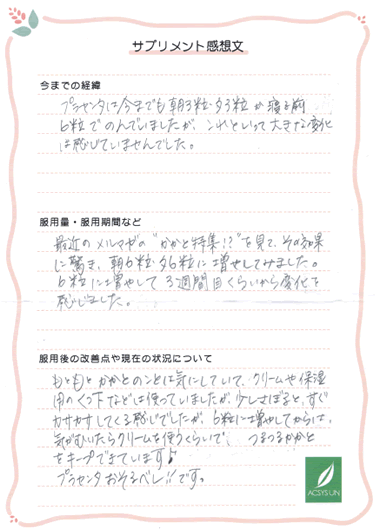 サプリメント感想文
今までの経緯
プラセンタは今までも朝3粒・夕3粒か寝る前
6粒でのんでいましたが、これといって大きな変化
は感じていませんでした。
服用量・服用期間など
最近のメルマガの"かかと特集!?"を見て、その効果
に驚き、朝6粒・夕6粒に増やしてみました。
6粒に増やして3週間目くらいから変化を
感じました。
服用後の改善点や現在の状況について
もともとかかとのことは気にしていて、クリームや保湿
用のくつ下などは使っていましたが、少しさぼると、すぐ
カサカサしてくる感じでしたが、6粒に増やしてからは、
気がむいたらクリームを使うくらいで、つるつるかかと
をキープできています♪
プラセンタおそるべし!!です。
ACSYSUN